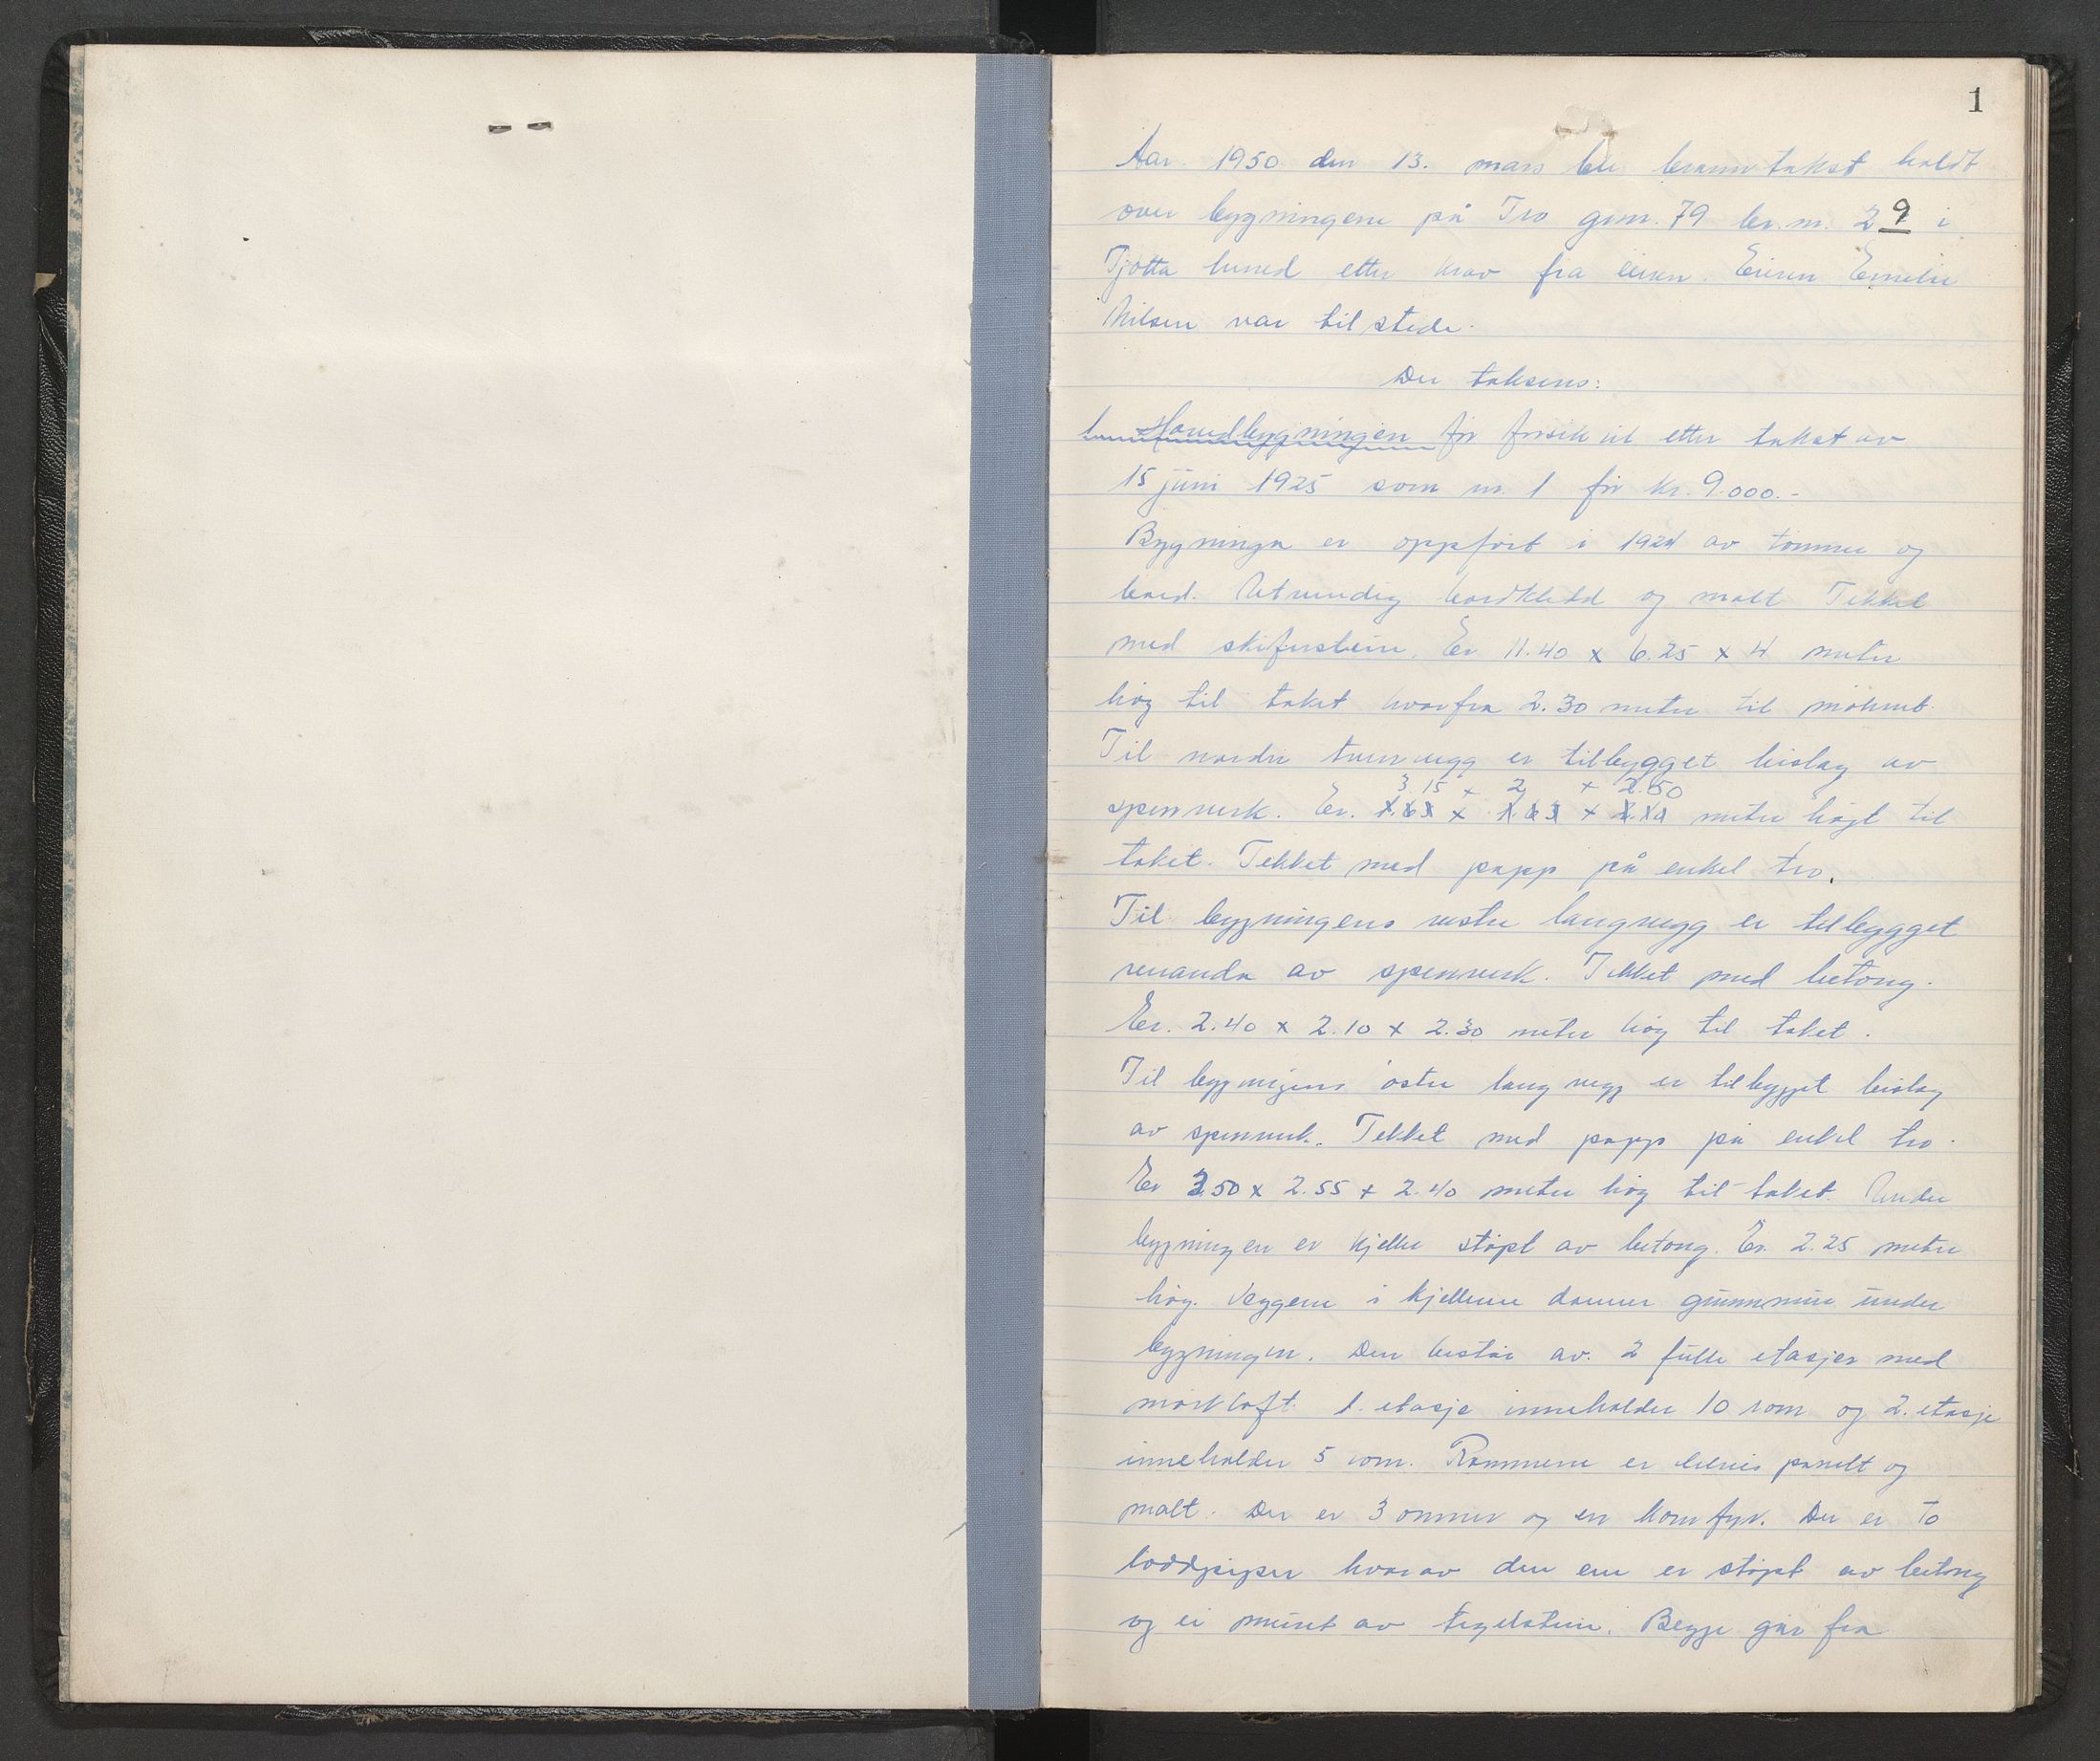 1
Aar 1950 den 13. mars ble branntakst holdt
over bygningene på Tro gnr. 79 br.nr. 29 i
Tjøtta herred etter krav fra eieren. Eieren Emelie
Nilsen var til stede.
Der takseres:
1. Hovedbygningen før forsikret etter takst av
15 juni 1925 som nr. 1 for kr. 9.000.-
Bygninga er oppført i 1924 av tømmer og
bord. Utvendig bordkledd og malt Tekket
med skiferstein. Er 11.40 x 6.25 x 4 meter
høg til taket hvorfra 2.30 meter til mønet.
Til nordre tverrvegg er tilbygget bislag av
3.15 x 2 x 2.50
spennverk. Er. x x meter høgt til
taket. Tekket med papp på enkel tro.
Til bygningens vestre langvegg er tilbygget
veranda av spennverk. Tekket med betong.
Er. 2.40 x 2.10 x 2.30 meter høg til taket.
Til bygningens østre langvegg er tilbygget bislag
av spennverk. Tekket med papp på enkel tro.
Er 3.50 x 2.55 x 2.40 meter høg til taket. Under
bygningen er kjeller støpt av betong. Er 2.25 meter
høg. Veggene i kjelleren danner grunnmur under
bygningen. Den består av. 2 fulle etasjer med
mørkloft. 1. etasje inneholder 10 rom og 2. etasje
inneholder 5 rom. Rommene er delvis panelt og
malt. Der er 3 ovner og en komfyr. Der er to
loddpiper hvorav den ene er støpt av betong
og ei muret av teglstein. Begge går fra